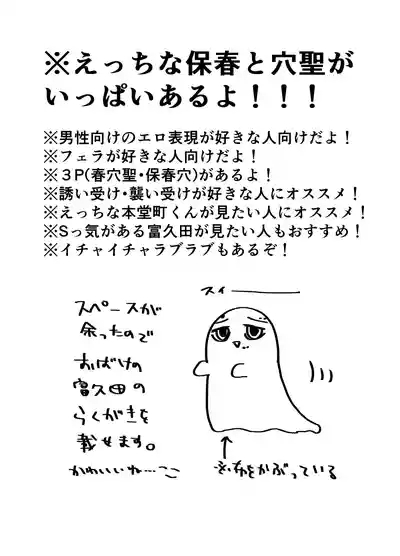 ※えっちな保春と穴聖が
いっぱいあるよ！！！
※男性向けのエロ表現が好きな人向けだよ！
※フェラが好きな人向けだよ！
※３P(春穴聖・保春穴)があるよ！
※誘い受け・襲い受けが好きな人にオススメ！
※えっちな本堂町くんが見たい人にオススメ！
※Sっ気がある富久田が見たい人もおすすめ！
※イチャイチャラブラブもあるぞ！
スイー
スペースが
余ったので
おばけの
富久田の
らくがきを
載せます。
かわいいね…ここ
布をかぶっている